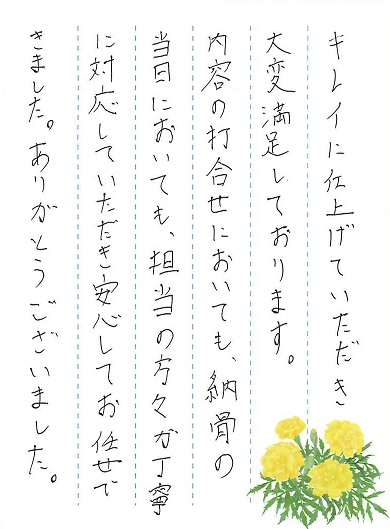 キレイに仕上げていただき
大変満足しております。
内容の打合せにおいても、納骨の
当日においても、担当の方々が丁寧
に対応していただき安心してお任せで
きました。ありがとうございました。